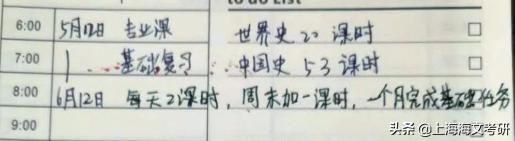 to do List
6:00 5月12日 专业课 世界史22课时
7:00 基础复习 中国史53课时
8:00 6月12日 每天2课时，周末加一课时，一个月完成基础任务
9:00
头条@上海海文考研